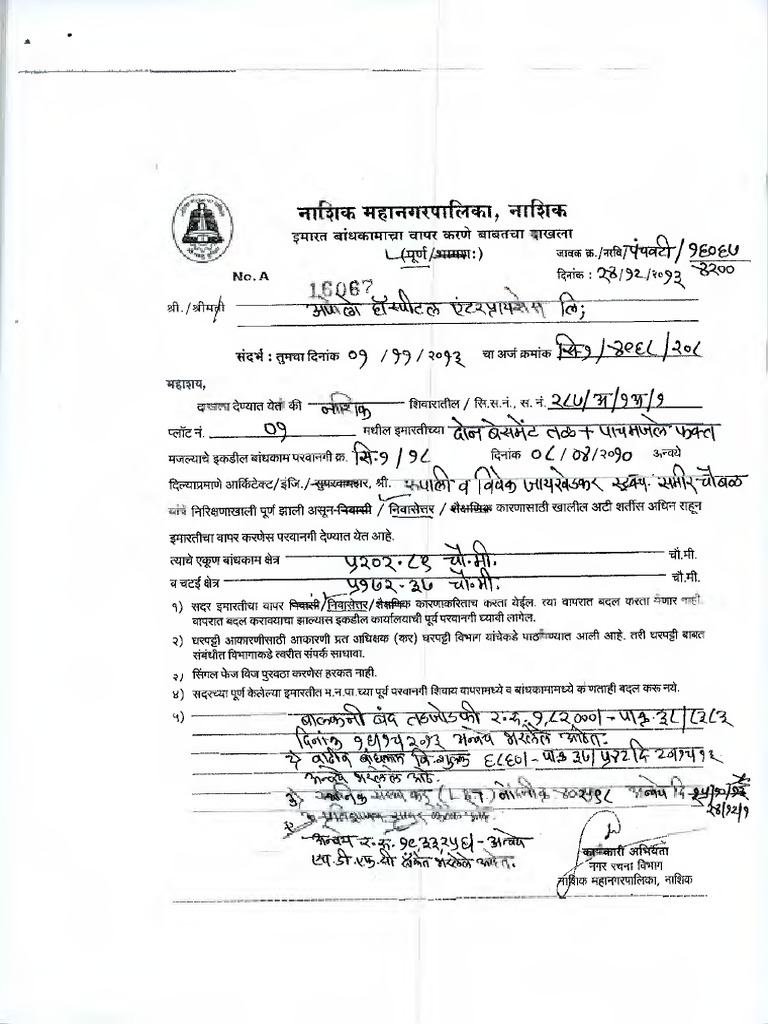 नाशिक महानगरपालिका, नाशिक
इमारत बांधकामाचा वापर करणे बाबतचा दाखला
(पूर्ण/भागशः)
जावक क्र./नरवि/पंचवटी/१६०६७
४२००
दिनांक : २४/१२/२०१३
No. A 16067
श्री./श्रीमती अपोलो हॉस्पीटल एंटरप्रायसेस लि;
संदर्भ : तुमचा दिनांक ०१/११/२०१३ चा अर्ज क्रमांक सि१/४९६८/२०८
महाशय,
दाखला देण्यात येतो की नाशिक शिवारातील / सि.स.नं., स. नं. २८७/अ/१अ/१
प्लॉट नं. ०१ मधील इमारतीच्या दोन बेसमेंट तळ + पाचमजले फक्त
मजल्याचे इकडील बांधकाम परवानगी क्र. सि.१/१८ दिनांक ०८/०४/२०१० अन्वये
दिल्याप्रमाणे आर्किटेक्ट/इंजि./सुपरवायझर, श्री. रुपाली व विवेक जायखेडकर स्ट्रक्च. समीर चौबळ
यांचे निरिक्षणाखाली पूर्ण झाली असून निवासी / निवासेत्तर / शैक्षणिक कारणासाठी खालील अटी शर्तीस अधिन राहून
इमारतीचा वापर करणेस परवानगी देण्यात येत आहे.
त्याचे एकूण बांधकाम क्षेत्र ५२०२.८९ चौ.मी. चौ.मी.
व चटई क्षेत्र ५१७२.३७ चौ.मी. चौ.मी.
१) सदर इमारतीचा वापर निवासी/निवासेत्तर/शैक्षणिक कारणाकरिताच करता येईल. त्या वापरात बदल करता येणार नाही.
वापरात बदल करावयाचा झाल्यास इकडील कार्यालयाची पूर्व परवानगी घ्यावी लागेल.
२) घरपट्टी आकारणीसाठी आकारणी प्रत अधिक्षक (कर) घरपट्टी विभाग यांचेकडे पाठविण्यात आली आहे. तरी घरपट्टी बाबत
संबंधीत विभागाकडे त्वरीत संपर्क साधावा.
३) सिंगल फेज विज पुरवठा करणेस हरकत नाही.
४) सदरच्या पूर्ण केलेल्या इमारतीत म.न.पा.च्या पूर्व परवानगी शिवाय वापरामध्ये व बांधकामामध्ये कोणताही बदल करू नये.
५) बाल्कनी बंद तडजोडफी र.रु. १,८२०००/- पा.क्र. ३८/८२८३
दिनांक अन्वये भरलेले आहेत.
२) वाढीव बांधकाम वि.शुल्क ६८६०/- पा.क्र ३७/५१८२ दि
अन्वये भरलेले आहे.
३) स्थानिक संस्था कर (L.B.T.) नोंदणीक्र ४०२५९८ अन्वये दि
२४/१२/१
अन्वये र.रु. १९३३२५६/- अन्वये
एच.डी.एफ.सी बँकेत भरलेले आहेत.
कार्यकारी अभियंता
नगर रचना विभाग
नाशिक महानगरपालिका, नाशिक